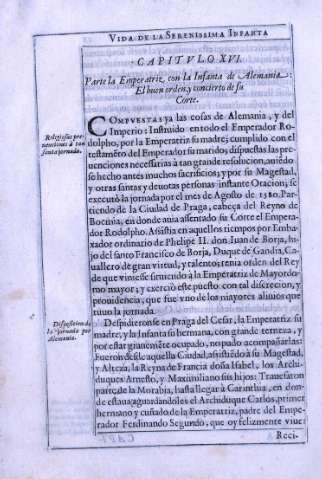 VIDA DE LA SERENISSIMA INFANTA
CAPITVLO XVI.
Parte la Emperatriz, con la Infanta de Alemania:
El buen orden, y concierto de su
Corte.
COMPVESTAS ya las cosas de Alemania, y del
Imperio: Instruido en todo el Emperador Ro-
dolpho, por la Emperatriz su madre; cumplido con el
testamẽto del Emperador su marido; dispuestas las pre-
uenciones necesarias à tan grande resolucion, auiẽdo-
se hecho antes muchos sacrificios; y por su Magestad,
y otras santas y deuotas personas instante Oracion; se
executò la jornada por el mes de Agosto de 1580. Par-
tiendo de la Ciudad de Praga, cabeça del Reyno de
Boemia, en donde auia assentado su Corte el Empera-
dor Rodolpho. Asistia en aquellos tiempos por Embax-
xador ordinario de Phelipe II. don Iuan de Borja, hi-
jo del santo Francisco de Borja, Duque de Gandia, Ca-
uallero de gran virtud, y talento; tenia orden del Rey
de que viniese siruiendo à la Emperatriz de Mayordo-
mo mayor; y exerciò este puesto con tal discrecion, y
prouidencia, que fue vno de los mayores aliuios que
tuuo la jornada.
Despidieronse en Praga del Cesar, la Emperatriz su
madre, y la Infanta su hermana, con grande terneza, y
por estar grauemẽte ocupado, no pudo acompañarlas:
Fueron desde aquella Ciudad, asistiẽdo à su Magestad,
y Alteza, la Reyna de Francia doña Isabel, los Archi-
duques Arnesto, y Maximiliano sus hijos: Trauesaron
parte de la Morabia, hasta llegar à Carinthia, en don-
de estaua aguardandoles el Archiduque Carlos, primer
hermano y cuñado de la Emperatriz, padre del Empe-
rador Ferdinando Segundo, que oy felizmente viue:
Reci-
Religiosas pre-
uenciones à tan
santa jornada.
Disposicion de
la jornada por
Alemania.